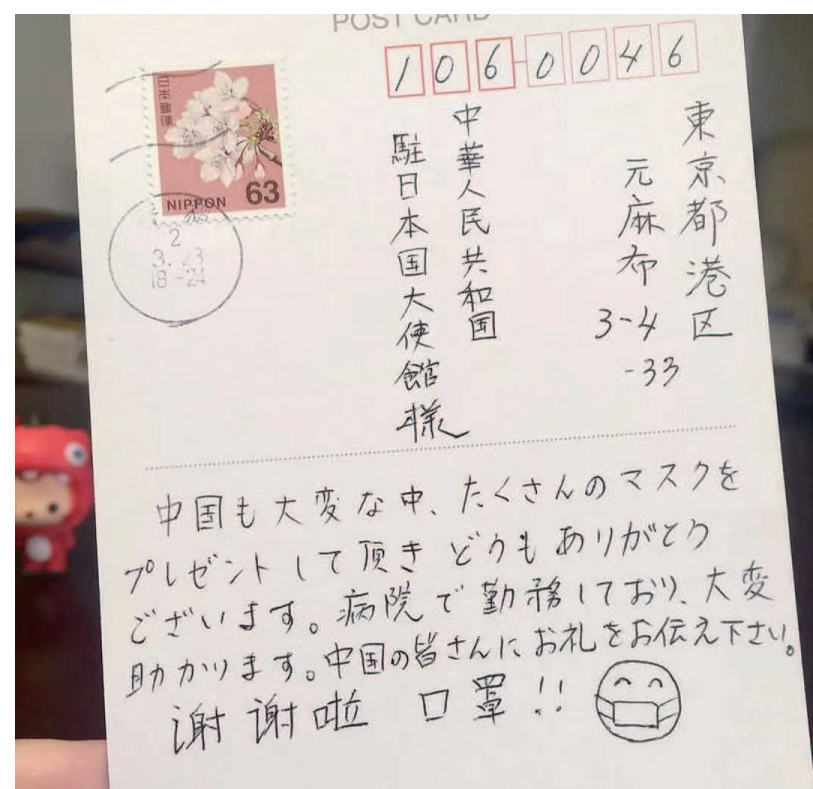 POST CARD
日本郵便
NIPPON 63
2
3.23
18-24
106-0046
東京都港区
元麻布
3-4
-33
中華人民共和国
駐日本国大使館
様
中国も大変な中、たくさんのマスクを
プレゼントして頂きどうもありがとう
ございます。病院で勤務しており、大変
助かります。中国の皆さんにお礼をお伝え下さい。
谢谢啦 口罩!!